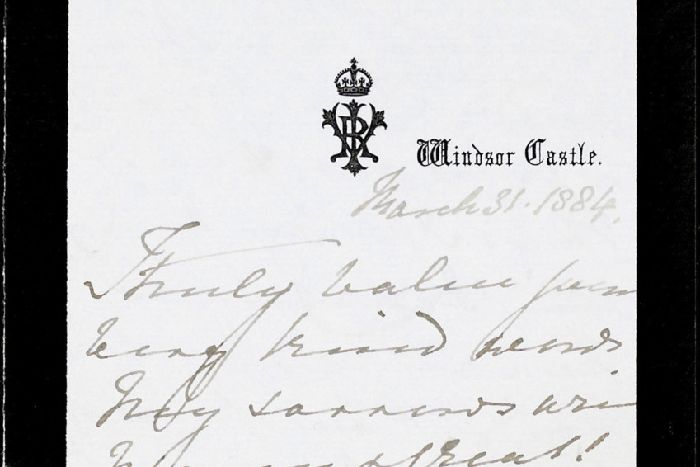 VRI
Windsor Castle.
March 31. 1884.
I truly value your
very kind words
My sorrows
great!